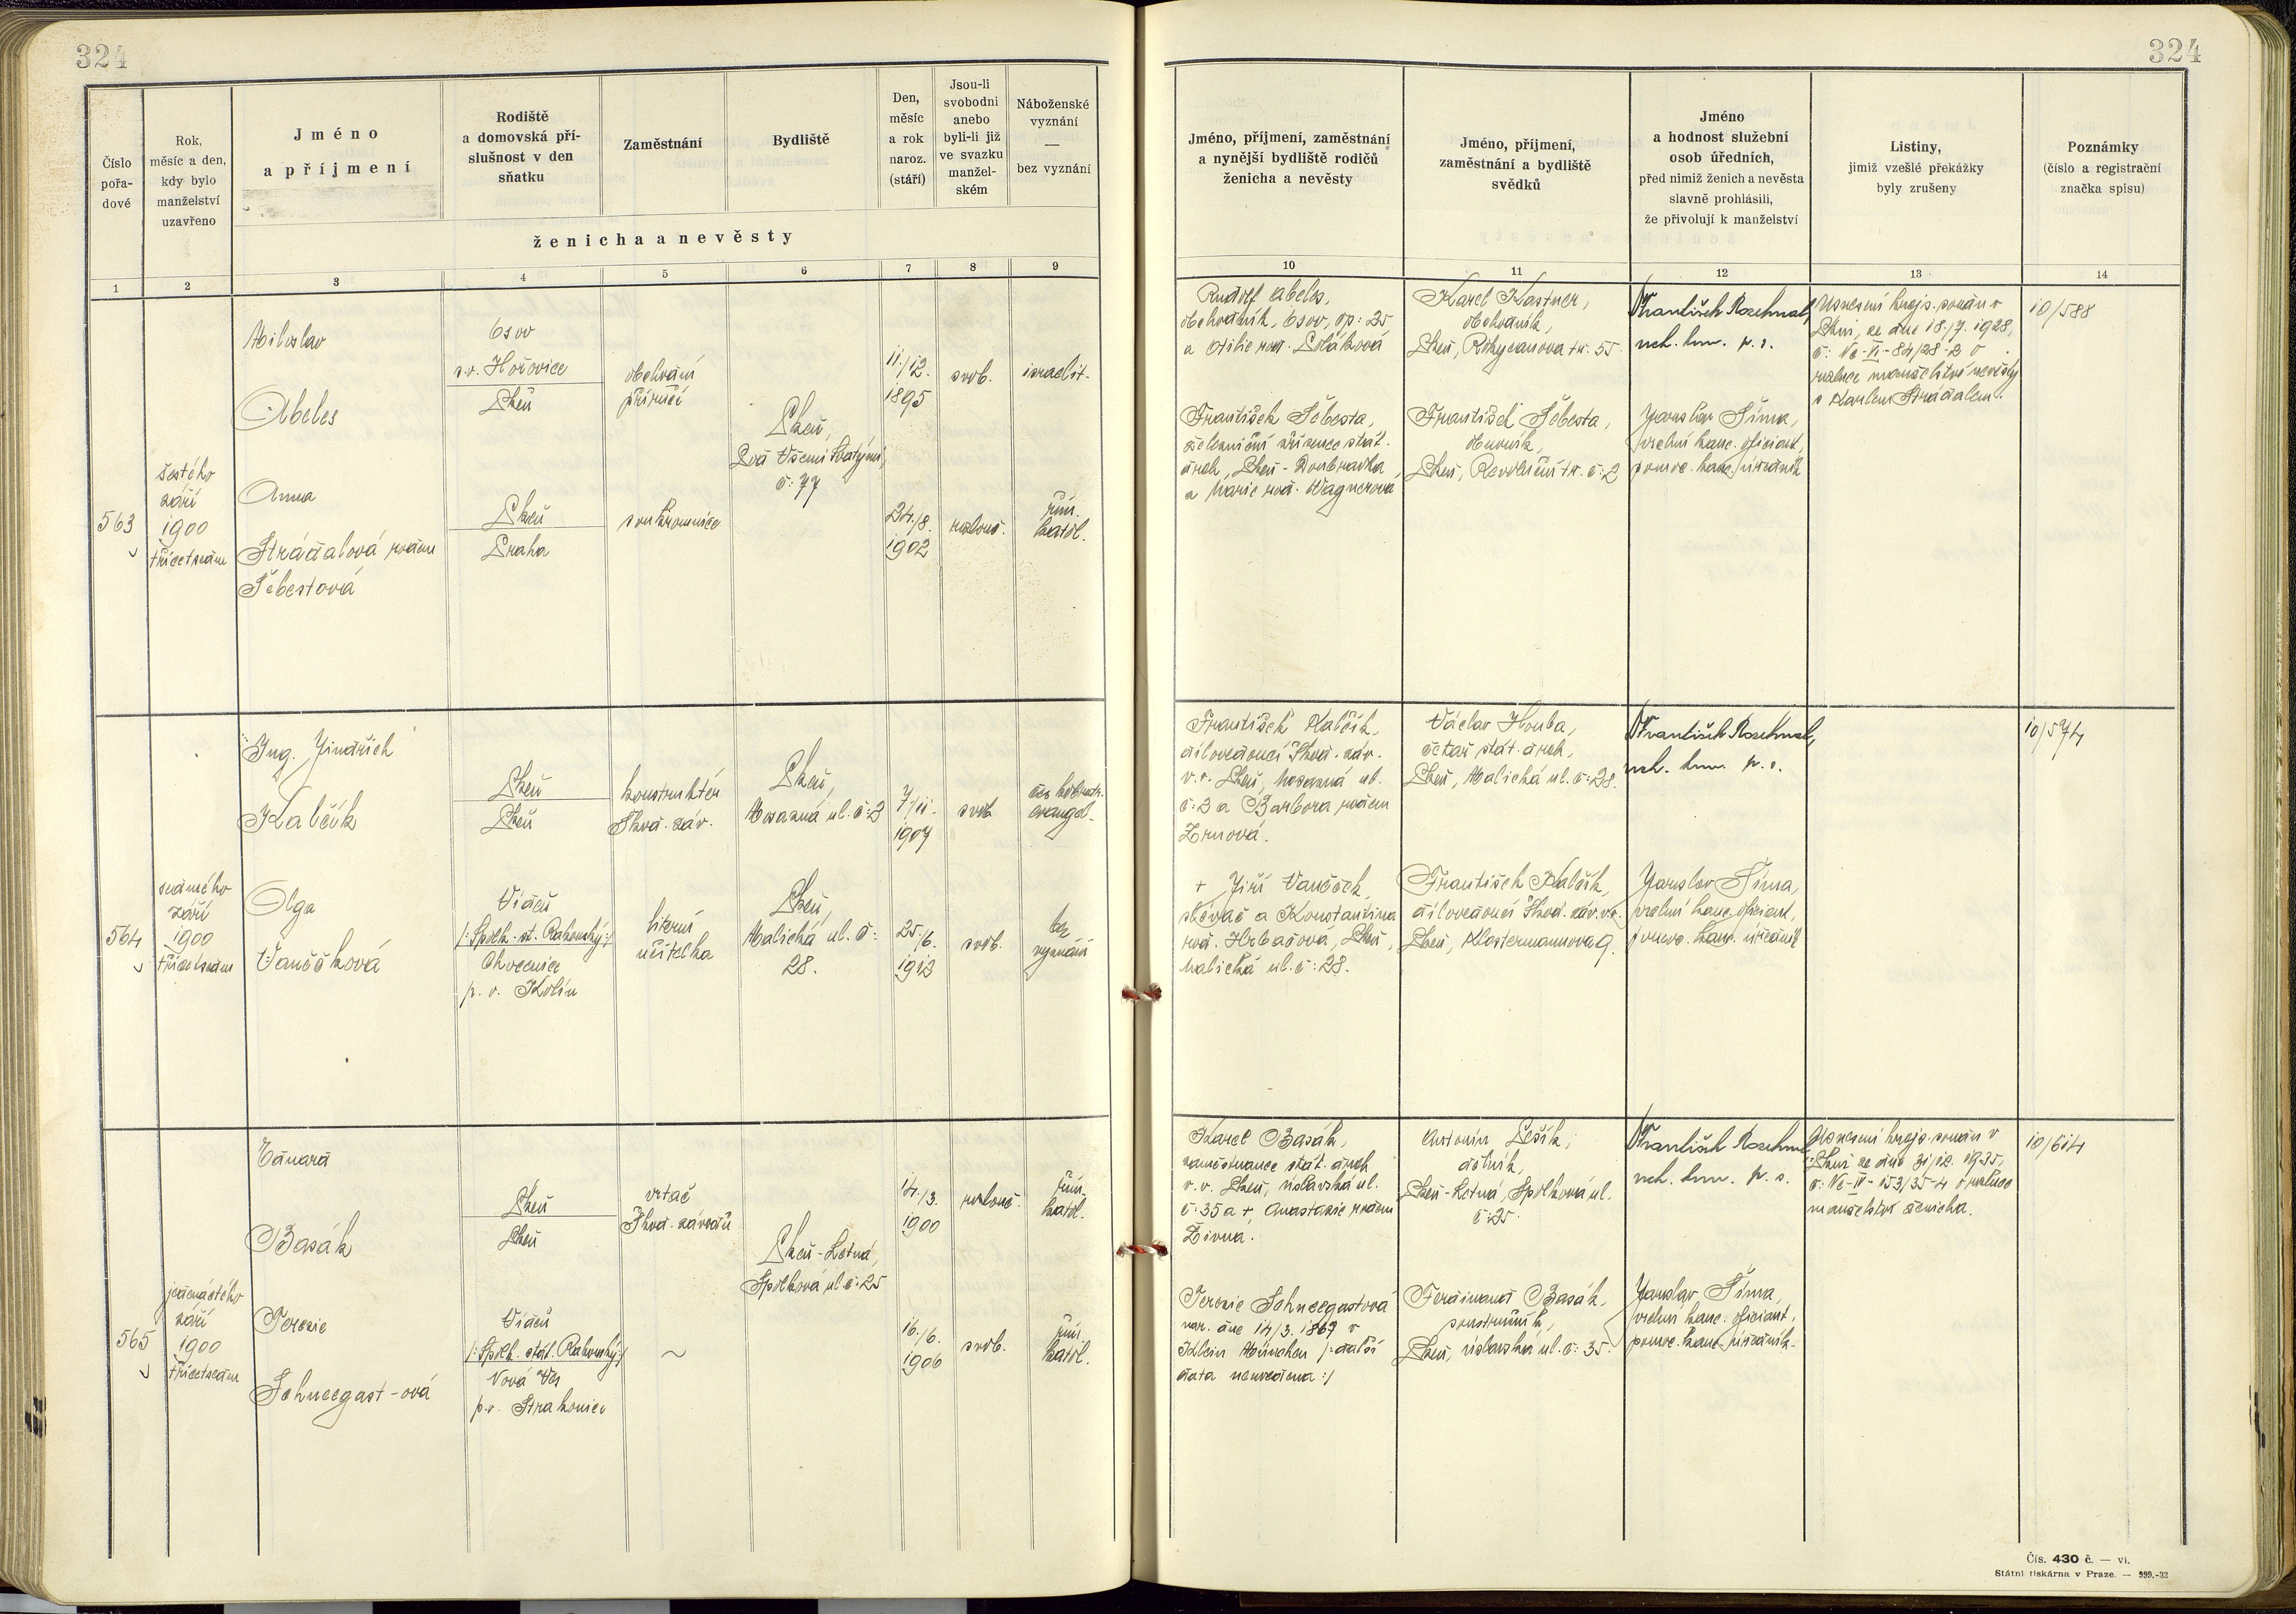 324
324
Číslo
pořa-
dové
Rok,
měsíc a den,
kdy bylo
manželství
uzavřeno
Jméno
a příjmení
Rodiště
a domovská pří-
slušnost v den
sňatku
Zaměstnání
Bydliště
Den,
měsíc
a rok
naroz.
(stáří)
Jsou-li
svobodni
anebo
byli-li již
ve svazku
manžel-
ském
Náboženské
vyznání
—
bez vyznání
ženicha a nevěsty
Jméno, příjmení, zaměstnání
a nynější bydliště rodičů
ženicha a nevěsty
Jméno, příjmení,
zaměstnání a bydliště
svědků
Jméno
a hodnost služební
osob úředních,
před nimiž ženich a nevěsta
slavně prohlásili,
že přivolují k manželství
Listiny,
jimiž vzešlé překážky
byly zrušeny
Poznámky
(číslo a registrační
značka spisu)
1 2 3 4 5 6 7 8 9 10 11 12 13 14
563
šestého
září
1900
třicetsedm
Miloslav
Abeles
Osov
s.o. Hořovice
Plzeň
obchodní
příručí
Plzeň,
Pod Všemi Svatými,
č: 77
11./12.
1895
svob.
israelit.
Anna
Strádalová rozen
Šebestová
Plzeň
Praha
soukromnice
24./8.
1902
rozlouč.
řím.
katol.
Rudolf Abeles,
obchodník, Osov, čp: 25
a Otilie roz. Poláková
František Šebesta,
železniční zřízenec stát.
drah, Plzeň - Doubravka,
a Marie roz. Wagnerová
Karel Kastner,
obchodník,
Plzeň, Rokycanova tř. 55
František Šebesta,
obuvník,
Plzeň, Revoluční tř. č: 2
František Rozehnal,
Jaroslav Šíma,
vrchní kanc. oficiant,
pomoc. kanc. úředník
Usnesení krajs. soudu v
Plzni, ze dne 18./7. 1928,
č: Nc-VI-84/28-2 o
rozluce manželství nevěsty
s Karlem Strádalem.
10/588
564
sedmého
září
1900
třicetsedm
Ing. Jindřich
Kalčík
Plzeň
Plzeň
konstruktér
Škod. záv.
Plzeň,
Mosazná ul. č: 2
7/11.
1907
svob.
čes. bobratr.
evangel.
Olga
Vančíková
Vídeň
/: Spolk. st. Rakouský :/
Chocenice
p. o. Kolín
literní
učitelka
Plzeň,
Malická ul. č:
28.
25./6.
1912
svob.
bez
vyznání
František Kalčík,
dílovedoucí Škod. záv.
v.v. Plzeň, Mosazná ul.
č: 2 a Barbora rozen
Zrnová.
+ Jiří Vančeck,
slévač a Konstantina
roz. Hrbačová, Plzeň,
Malická ul. č: 28.
Václav Houba,
četař stát. drah,
Plzeň, Malická ul. č: 28.
František Kalčík,
dílovedoucí Škod. záv. v.v.
Plzeň, Klostermannova 9.
František Rozehnal,
Jaroslav Šíma,
vrchní kanc. oficiant,
pomoc. kanc. úředník
10/574
565
jedenáctého
září
1900
třicetsedm
Eduard
Basák
Plzeň
Plzeň
vrtač
Škod. závodů
Plzeň - Letná,
Spolková ul. č: 25
14./3.
1900
rozlouč.
řím.
katol.
Terezie
Schneegast-ová
Vídeň
/: Spolk. stát. Rakouský :/
Nová Ves
p.o. Strakonice
~
16./6.
1906
svob.
řím.
katol.
Karel Basák,
zaměstnanec stát. drah
v.v. Plzeň, úslavská ul.
č: 35 a +, Anastazie rozen
Živna.
Terezie Schneegastová
nar. dne 14/3. 1867 v
Klein München /: další
data neuvedena :/
Antonín Pešík,
dělník,
Plzeň - Letná, Spolková ul.
č: 25.
Ferdinand Basák,
soustružník,
Plzeň, úslavská ul. č: 35.
František Rozehnal
Jaroslav Šíma,
vrchní kanc. oficiant,
pomoc. kanc. úředník
Usnesení krajs. soudu v
Plzni ze dne 31/12. 1935,
č: Nc-IV-153/35-4 o rozluce
manželství ženicha.
10/614
Čís. 430 č. — vi.
Státní tiskárna v Praze. — 999.-32